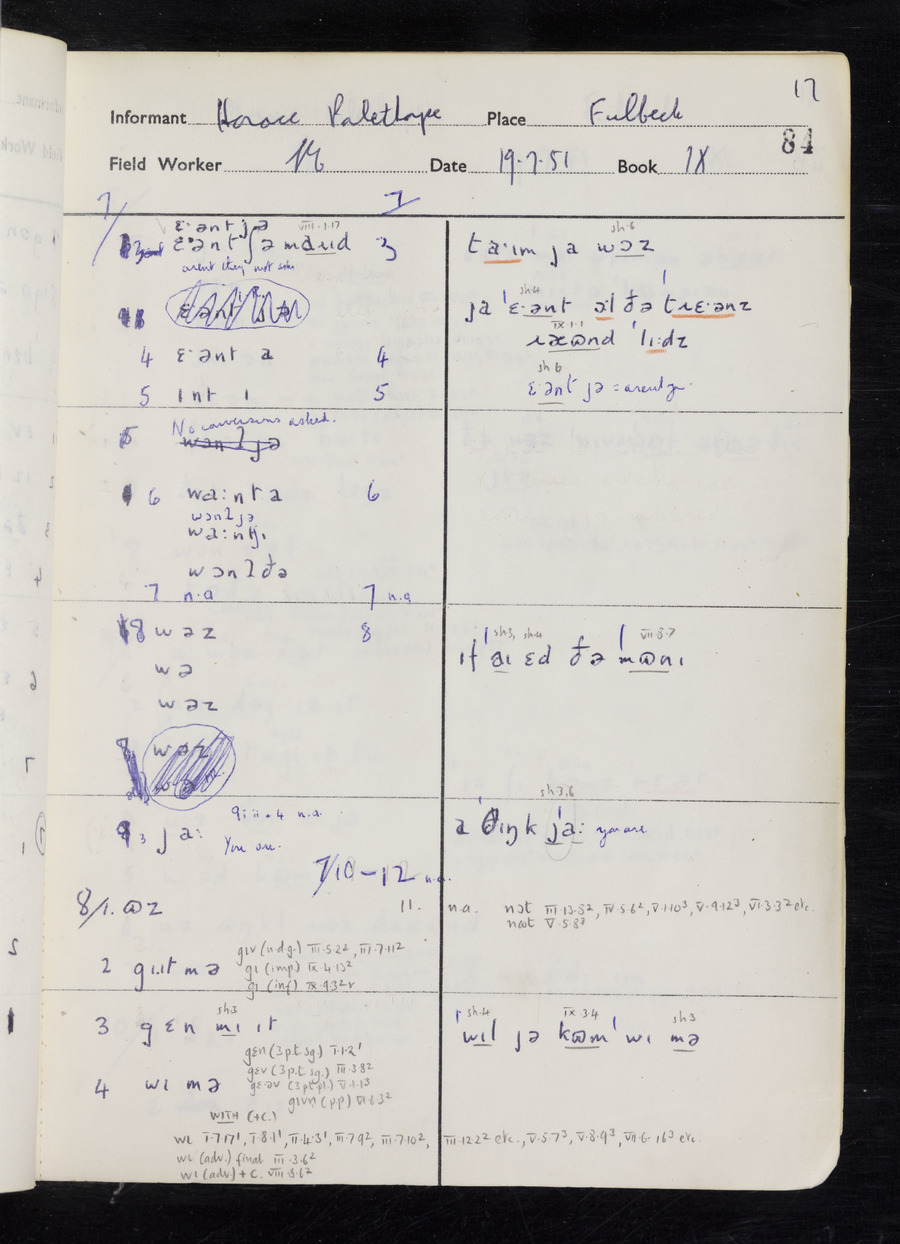 17
Informant Horace Palethorpe Place Fulbeck
84
Field Worker Date 19.7.51 Book IX
7/ 7
ɛ·ənt jə VIII.1.17
ɛ·ənt ʃə 3
arent they not ask
4 ɛ·ənt a 4
5 ɪnt ɪ 5
No conversions asked.
wənʔ jə
6 wa:nt a 6
wɔnʔ jə
wɔnʔ ðə
7 n.a 7 n.a
8 wəz 8
wə
wəz
8 wəz
3 ja: 9 iii.4 n.a.
You are.
7/10 – 12 n.a.
8/1. ɷz 11.
2 gɪːt mə
giv (ndg.) III.5.2², III.7.11²
gɪ (imp) IX.4.13²
gɪ (inf) IX.9.3²r
3 gɛn mɪ ɪt
sh3
gɛn (3 p.t. sg.) I.1.2¹
gɛv (3 p.t. sg.) III.3.8²
gɛ·əv (3 pt pl.) V.1.1³
givn (pp) VI.8.3²
4 wɪ mə
WITH (+C.)
wɪ I.7.17¹, I.8.1¹, II.4.3¹, III.7.9², III.7.10², III.12.2² etc., V.5.7³, V.8.9³, VII.6.16³ etc.
wɪ (adv.) final III.3.6²
wɪ (adv) + C. VIII.8.6²
sh.6
ta·ɪm jə wɔz
sh4
ja ˈɛ·ənt əl ðə trɛ·ənz
IX.1.1
ɹæɷnd ˈlɪ:dz
sh 6
ɛ·ənt jə = arent y.
sh3, sh4 VII.8.7
ɪf aɪ ɛd ðə mɷnɪ
sh 3,6
a θɪŋk ja: you are
n.a. nɔt III.13.8², IV.5.6², V.1.10³, V.9.12³, VI.3.3² etc.
nɷt V.5.8³
sh.4 IX.3.4 sh3
wɪl jə kɷm wɪ mə